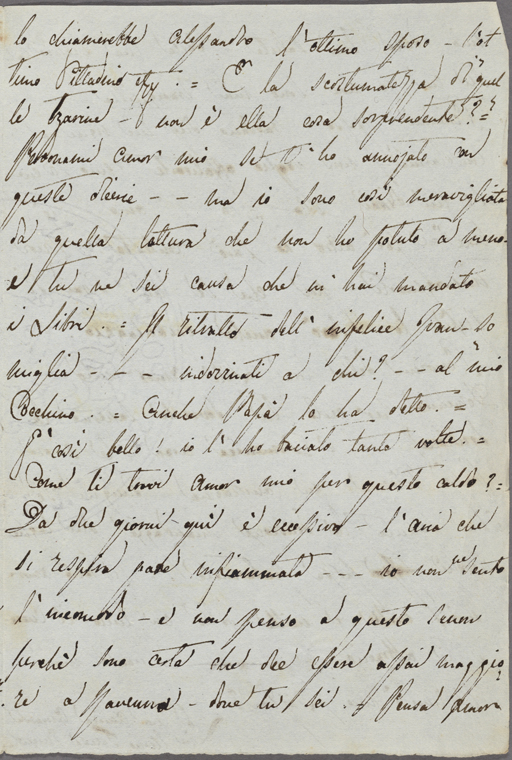 lo chiamerebbe Alessandro l'ottimo sposo – l'ot
timo Cittadino = E la scostumatezza di quel
le Czarine – non è ella cosa sorprendente? =
Perdonami amor mio se t'ho annojato con
queste dicerie – – ma io sono così meravigliata
da quella lettura che non ho potuto a meno –
e tu ne sei causa che m'hai mandato
i Libri. = Il ritratto dell'infelice Gran so
miglia – – – indovinati a chi? – – al mio
Cocchino. = Anche Papà lo ha detto. =
E' così bello! io l'ho baciato tante volte. =
Come ti trovi amor mio per questo caldo? =
Da due giorni quì è eccessivo – l'aria che
si respira pare infiammata – – – io non ne sento
l'incomodo – e non penso a questo se non
perchè sono certa che dee essere assai maggio
re a Ravenna – dove tu sei. Pensa Amor